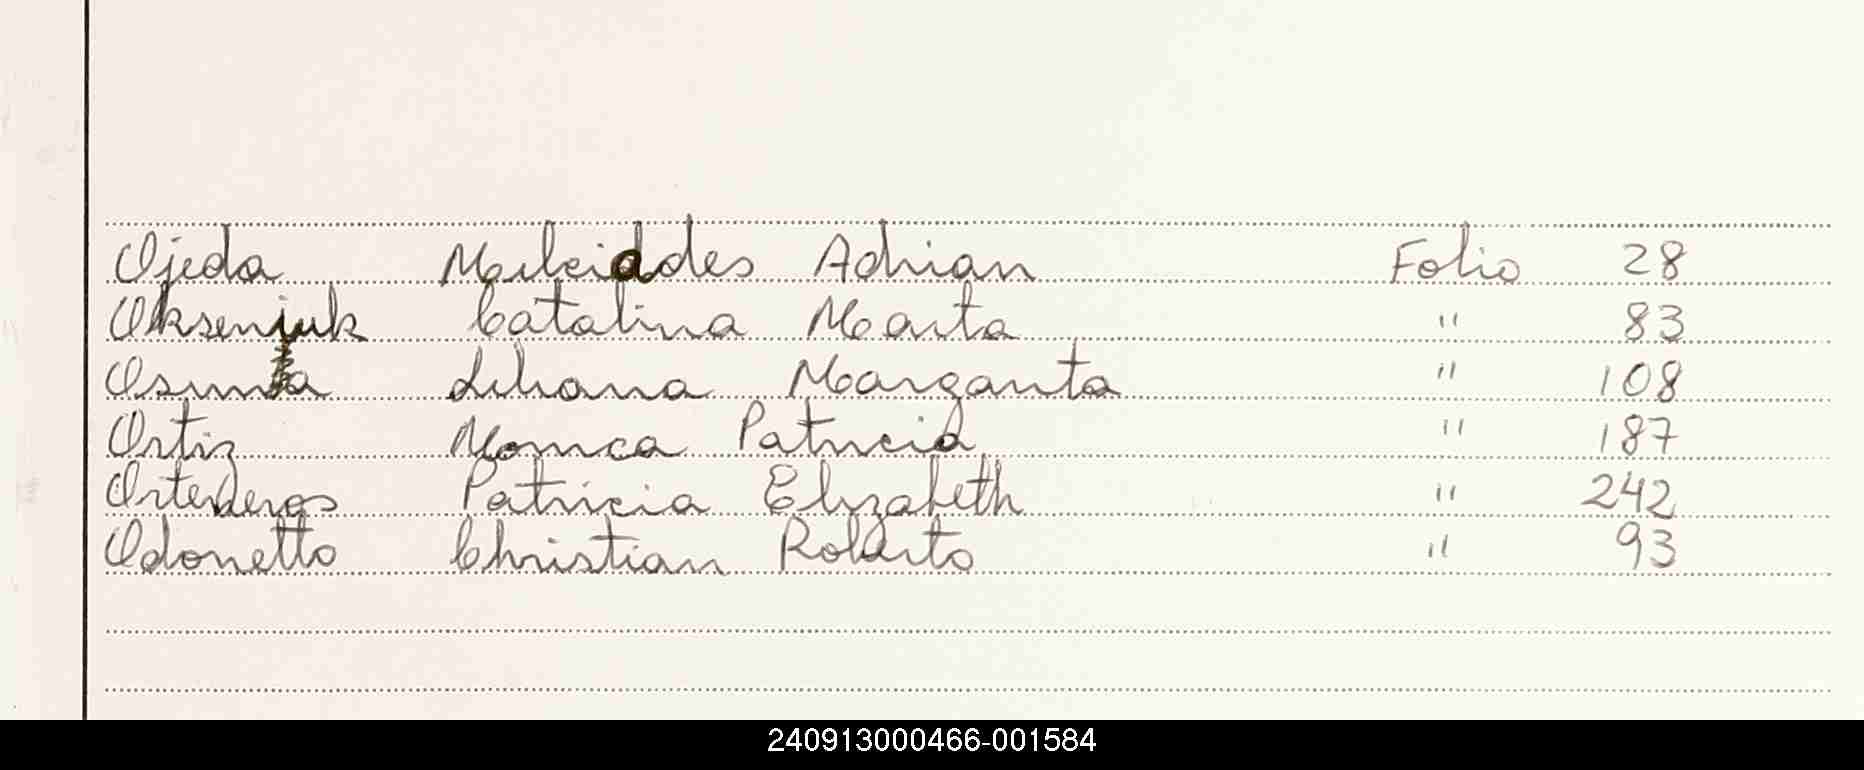 Ojeda Melciades Adrian Folio 28
Oksenjuk Catalina Marta " 83
Osuna Liliana Margarita " 108
Ortiz Monica Patricia " 187
Patricia Elizabeth " 242
Odonetto Christian Roberto " 93
240913000466-001584